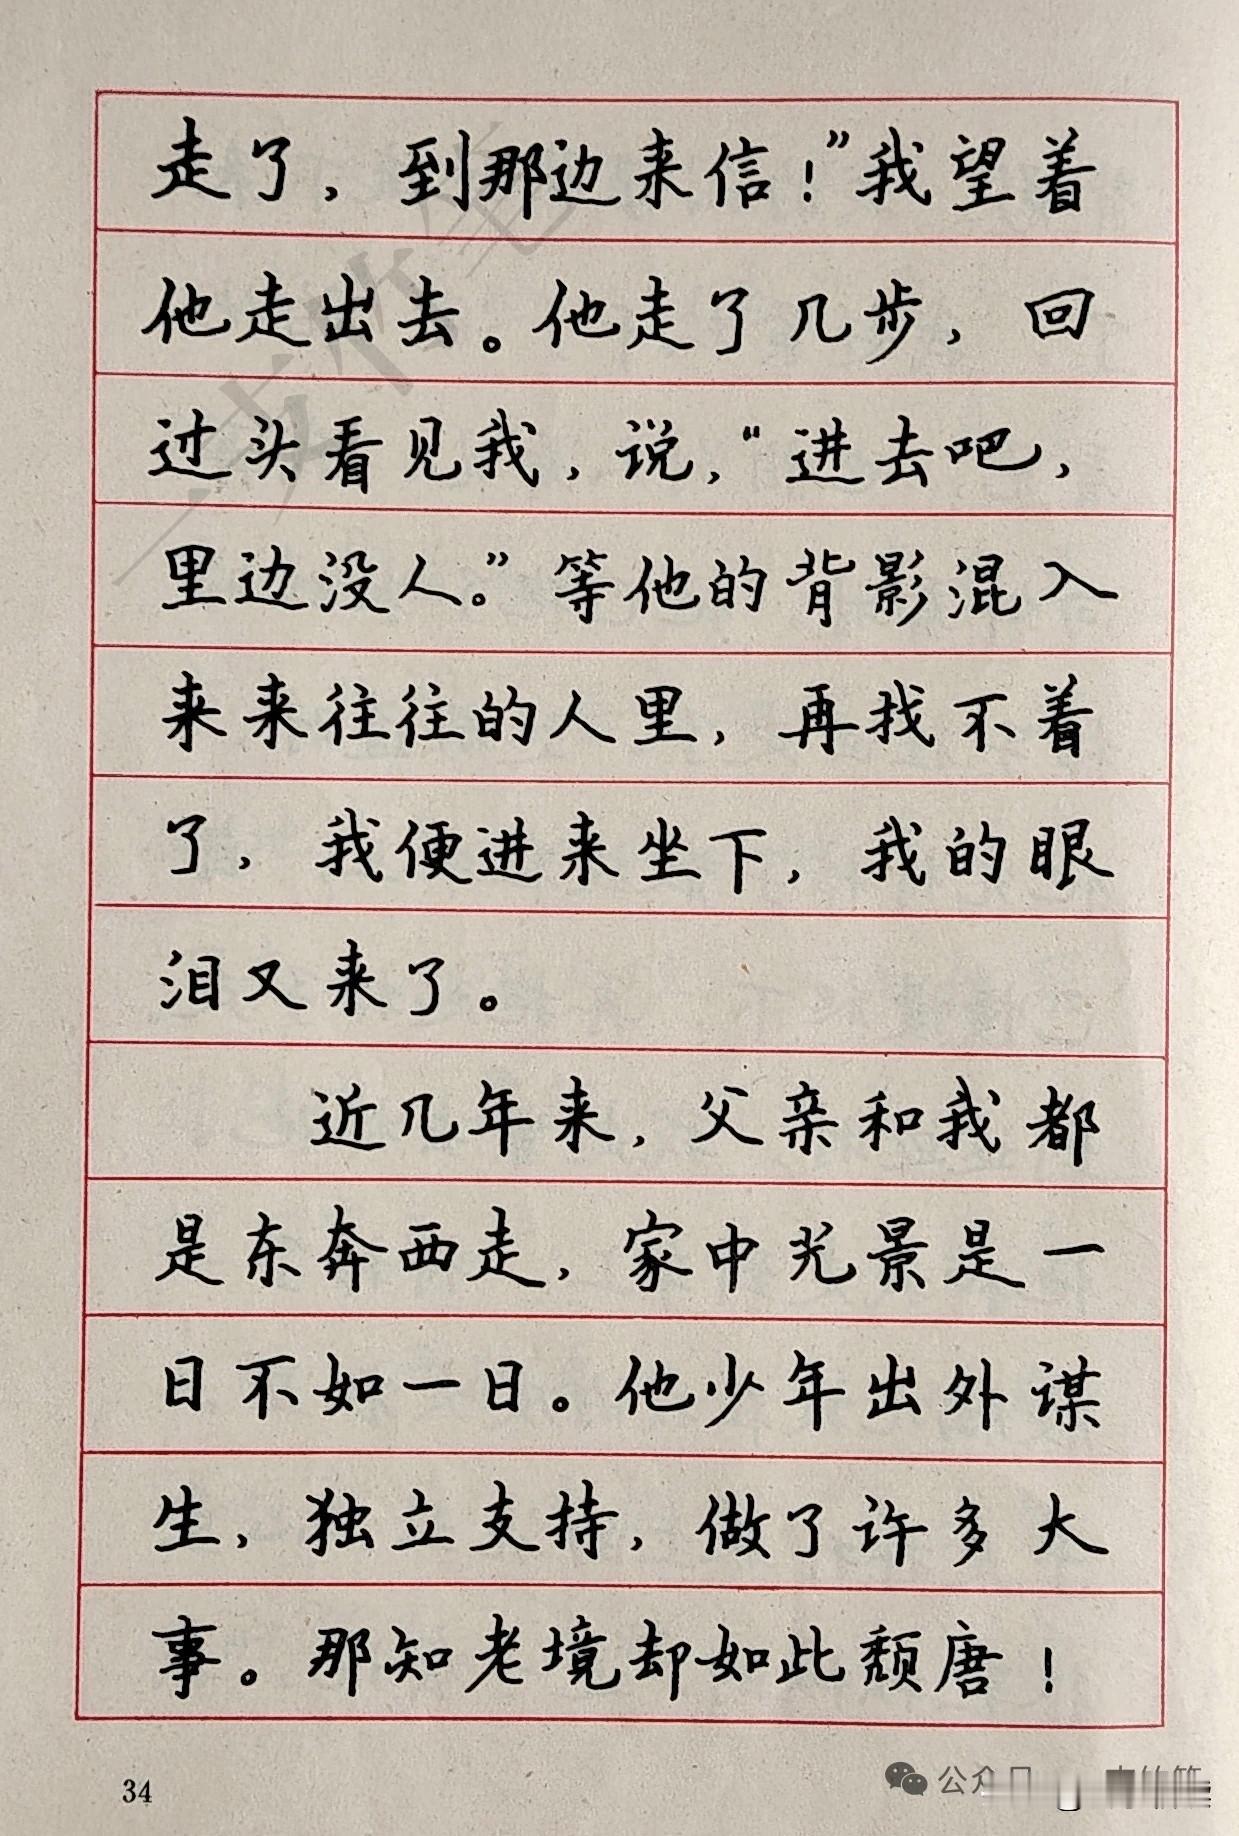 走了，到那边来信！”我望着
他走出去。他走了几步，回
过头看见我，说，“进去吧，
里边没人。”等他的背影混入
来来往往的人里，再找不着
了，我便进来坐下，我的眼
泪又来了。
近几年来，父亲和我都
是东奔西走，家中光景是一
日不如一日。他少年出外谋
生，独立支持，做了许多大
事。那知老境却如此颓唐！
34
公众号